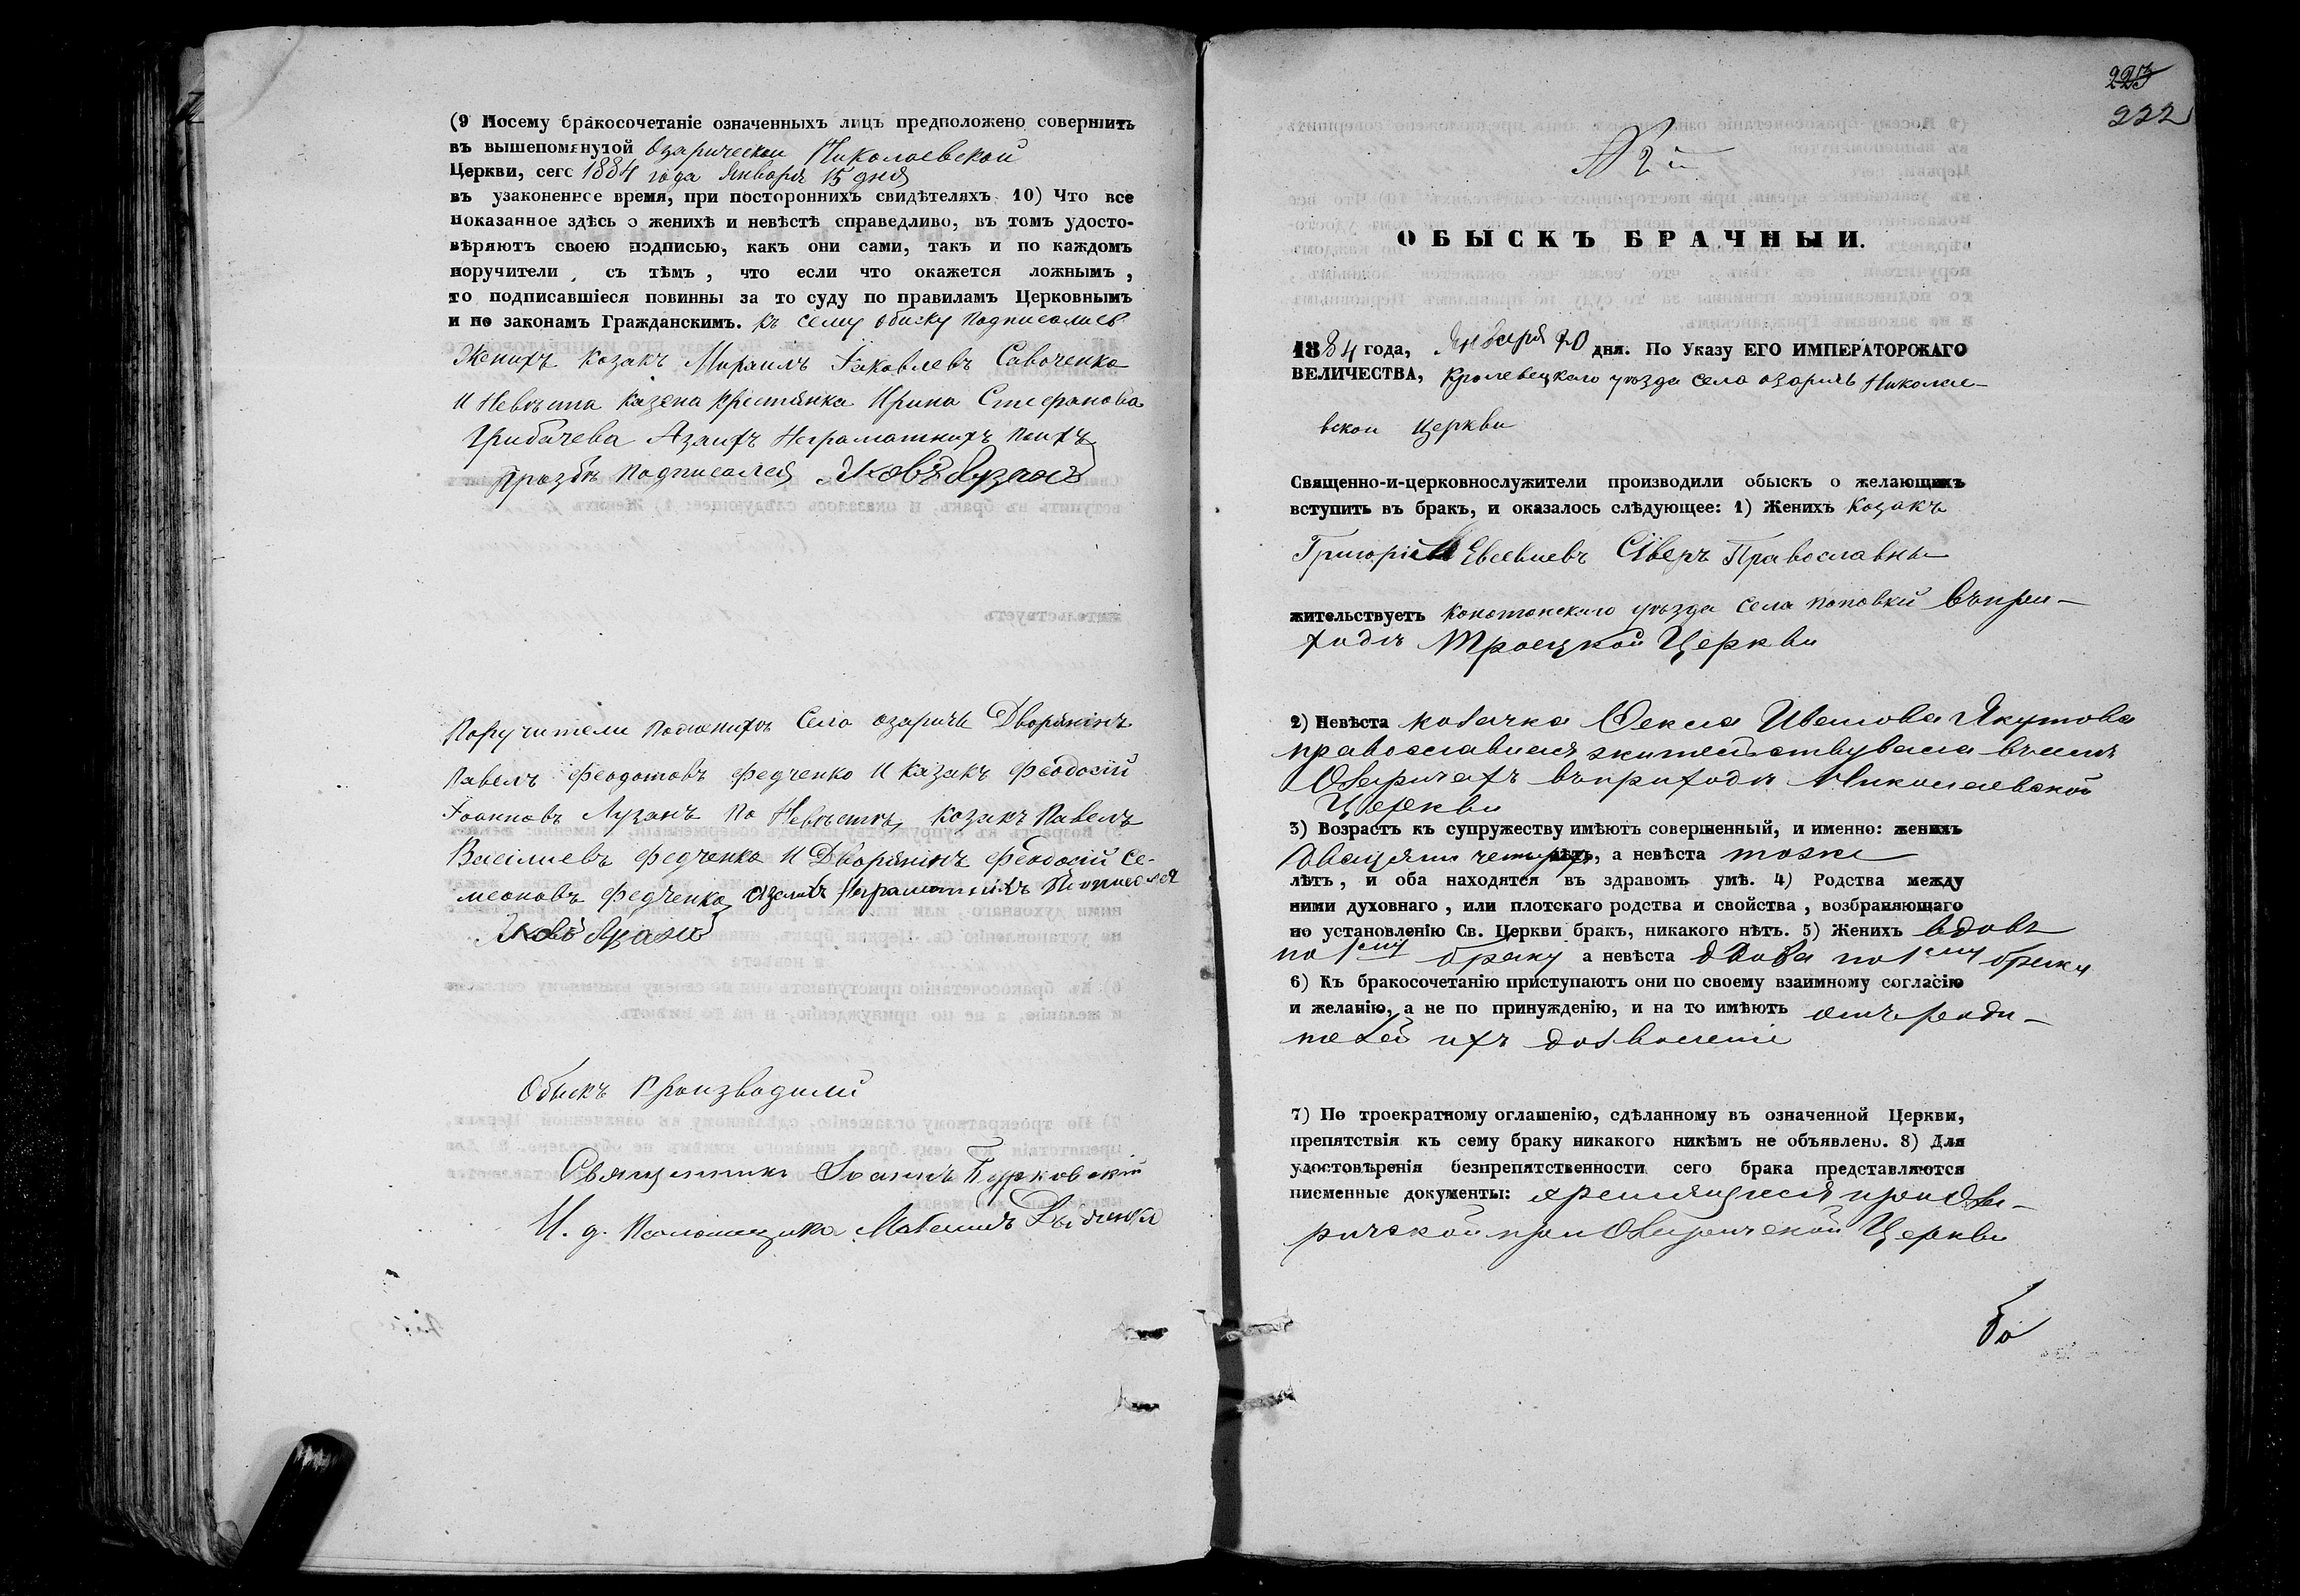 (9 Посему бракосочетаніе означенныхъ лицъ предположено совершить
въ вышепомянутой Озарической Николаевской
Церкви, сего 1884 года Января 15 дня
въ узаконенное время, при постороннихъ свидѣтеляхъ 10) Что все
показанное здѣсь о женихѣ и невѣстѣ справедливо, въ томъ удосто-
вѣряютъ своею подписью, какъ они сами, такъ и по каждомъ
поручители, съ тѣмъ, что если что окажется ложнымъ,
то подписавшіеся повинны за то суду по правиламъ Церковнымъ
и по законамъ Гражданскимъ. Къ сему обиску подписались
Женихъ козакъ Михаилъ Іаковлевъ Савоченко
и Невѣста казена крістянка Ирина Стефанова
Грибачева Азаихъ Неграматнихъ поихъ
прозбѣ подписался Яковъ Лузанъ
Поручители поженихѣ Села озаричъ Дворянінъ
Павелъ Феодотовъ Федченко и казакъ Феодосій
Іоанновъ Лузанъ по Невѣстѣ, козакъ Павелъ
Васілиевъ Федченко и Дворянінъ Феодосій Се-
меоновъ Федченко, Неграмотнихъ
Яковъ Лузанъ
Обыскъ производили
Священникъ Іоаннъ Бурковскій
И. д. Псаломщика
223
222
№ 2й
ОБЫСКЪ БРАЧНЫЙ.
1884 года, Января 20 дня. По Указу ЕГО ИМПЕРАТОРСКАГО
ВЕЛИЧЕСТВА, Кролевецкаго уѣзда села озаричъ Николае-
вскои Церкви
Священно-и-церковнослужители производили обыскъ о желающихъ
вступить въ бракъ, и оказалось слѣдующее: 1) Женихъ Козакъ
Григорій Евсевиевъ Сіверъ Православны
жительствуетъ Конотопскаго уѣзда села поповки въпри-
ходѣ Троецкой Церкви
2) Невѣста козачка Фекла Иванова Якутова
православная въселѣ
Озаричахъ въприходѣ Николаевской
Церкви
3) Возрастъ къ супружеству имѣютъ совершенный, и именно: женихъ
двацяти четирехъ лѣтъ, а невѣста тоже
лѣтъ, и оба находятся въ здравомъ умѣ. 4) Родства между
ними духовнаго, или плотскаго родства и свойства, возбраняющаго
по установленію Св. Церкви бракъ, никакого нѣтъ. 5) Женихъ вдовъ
по 1ему браку а невѣста вдова по 1ему браку
6) Къ бракосочетанію приступаютъ они по своему взаимному согласію
и желанію, а не по принужденію, и на то имѣютъ отъ роди-
телей ихъ дозволеніе
7) По троекратному оглашенію, сдѣланному въ означенной Церкви,
препятствія къ сему браку никакого никѣмъ не объявлено. 8) Для
удостовѣренія безпрепятственности сего брака представляются
писменные документы: хренящиеся при Оза-
ричской при Озаричской Церкви